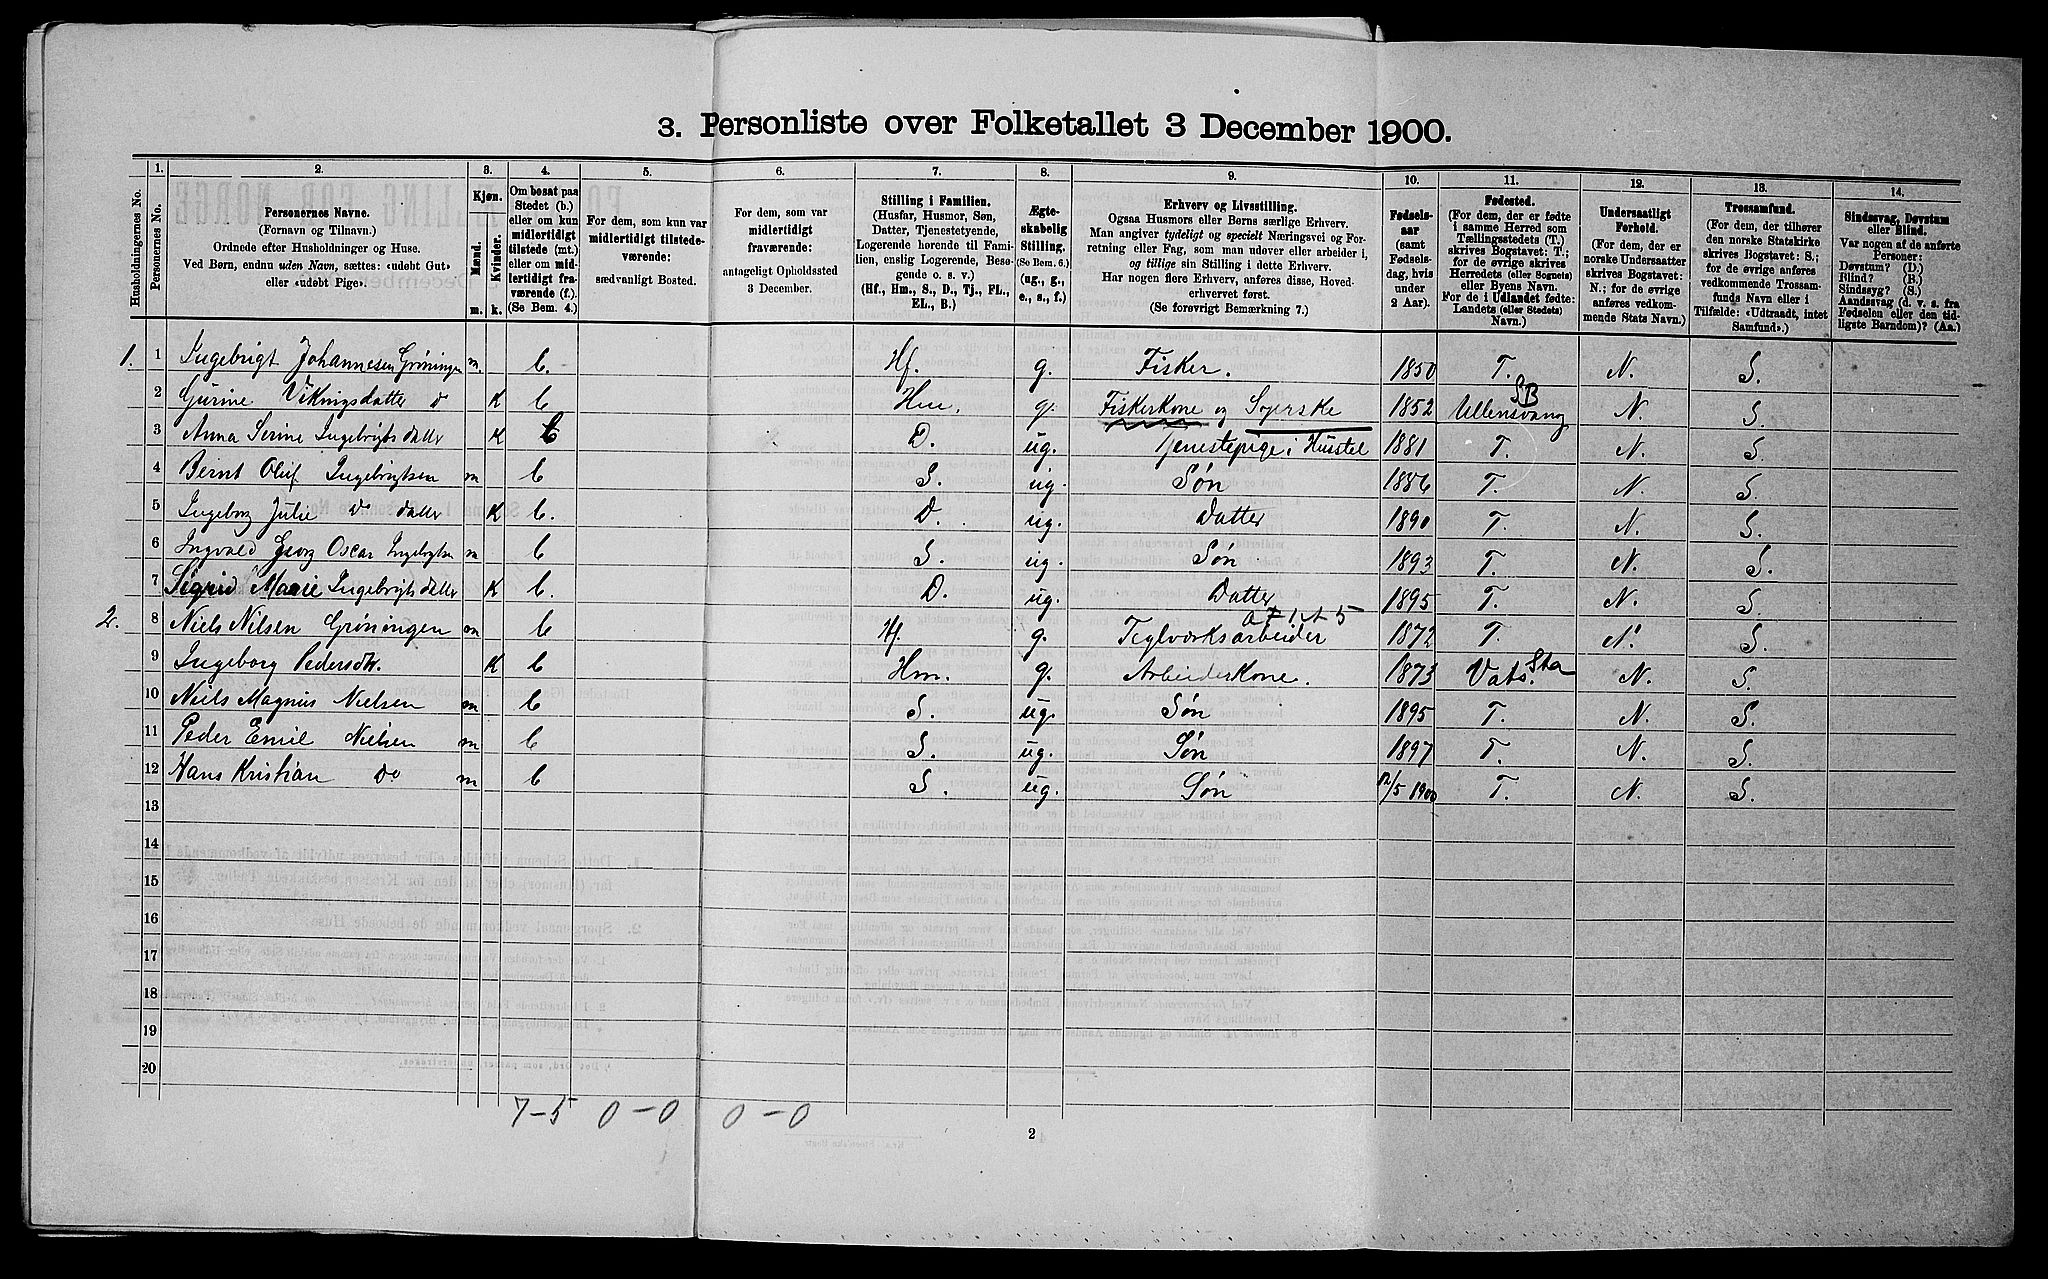 3. Personliste over Folketallet 3 December 1900.
Husholdningernes No.
1.
Personernes No.
2.
Personernes Navne.
(Fornavn og Tilnavn.)
Ordnede efter Husholdninger og Huse.
Ved Børn, endnu uden Navn, sættes: «udøbt Gut»
eller «udøbt Pige».
3.
Kjøn.
Mænd.
Kvinder.
m.
k.
4.
Om bosat paa
Stedet (b.)
eller om kun
midlertidigt
tilstede (mt.)
eller om mid-
lertidigt fra-
værende (f.)
(Se Bem. 4.)
5.
For dem, som kun var
midlertidigt tilstede-
værende:
sædvanligt Bosted.
6.
For dem, som var
midlertidigt
fraværende:
antageligt Opholdssted
3 December.
7.
Stilling i Familien.
(Husfar, Husmor, Søn,
Datter, Tjenestetyende,
Logerende hørende til Fami-
lien, enslig Logerende, Besø-
gende o. s. v.)
(Hf., Hm., S., D., Tj., FL.,
EL., B.)
8.
Ægte-
skabelig
Stilling.
(Se Bem. 6.)
(ug., g.,
e., s., f.)
9.
Erhverv og Livsstilling.
Ogsaa Husmors eller Børns særlige Erhverv.
Man angiver tydeligt og specielt Næringsvei og For-
retning eller Fag, som man udøver eller arbeider i,
og tillige sin Stilling i dette Erhverv.
Har nogen flere Erhverv, anføres disse, Hoved-
erhvervet først.
(Se forøvrigt Bemærkning 7.)
10.
Fødsels-
aar
(samt
Fødsels-
dag, hvis
under
2 Aar).
11.
Fødested.
(For dem, der er fødte
i samme Herred som
Tællingsstedets (T.)
skrives Bogstavet: T.;
for de øvrige skrives
Herredets (eller Sognets)
eller Byens Navn.
For de i Udlandet fødte:
Landets (eller Stedets)
Navn.)
12.
Undersaatligt
Forhold.
(For dem, der er
norske Undersaatter
skrives Bogstavet:
N.; for de øvrige
anføres vedkom-
mende Stats Navn.)
13.
Trossamfund.
(For dem, der tilhører
den norske Statskirke
skrives Bogstavet: S.;
for de øvrige anføres
vedkommende Trossam-
funds Navn eller i
Tilfælde: «Udtraadt, intet
Samfund».)
14.
Sindssvag, Døvstum
eller Blind.
Var nogen af de anførte
Personer:
Døvstum? (D.)
Blind? (B.)
Sindssyg? (S.)
Aandssvag (d. v. s. fra
Fødselen eller den tid-
ligste Barndom)? (Aa.)
1. 1 Ingebrigt Johannesen Grøningen m. b. Hf. g. Fisker. 1850 T. N. S.
2 Gurine Vikingsdatter do k b Hm. g. Fiskerkone og Syerske 1852 Ullensvang SB N. S.
3 Anna Serine Ingebrigtsdatter k b D. ug. Tjenestepige i Huset 1881 T. N. S.
4 Bernt Oluf Ingebrigtsen m b S. ug. Søn 1886 T. N. S.
5 Ingeborg Julie do datter k b. D. ug. Datter 1890 T. N. S.
6 Ingvald Georg Oscar Ingebrigtsen m b S. ug. Søn 1893 T. N. S.
7 Sigrid Marie Ingebrigtsdatter k b. D. ug. Datter 1895 T. N. S.
2. 8 Niels Nilsen Grøningen m b Hf. g. Teglverksarbeider 1872 T. N. S.
9 Ingeborg Pedersdtr. k b Hm. g. Arbeiderkone. 1873 Vats. Sta N. S.
10 Niels Magnus Nielsen m b S. ug. Søn 1895 T. N. S.
11 Peder Emil Nielsen m b S. ug. Søn 1897 T. N. S.
12 Hans Kristian do m b S. ug. Søn 12/5 1900 T. N. S.
13
14
15
16
17
18
19
20
7-5 0-0 0-0
2